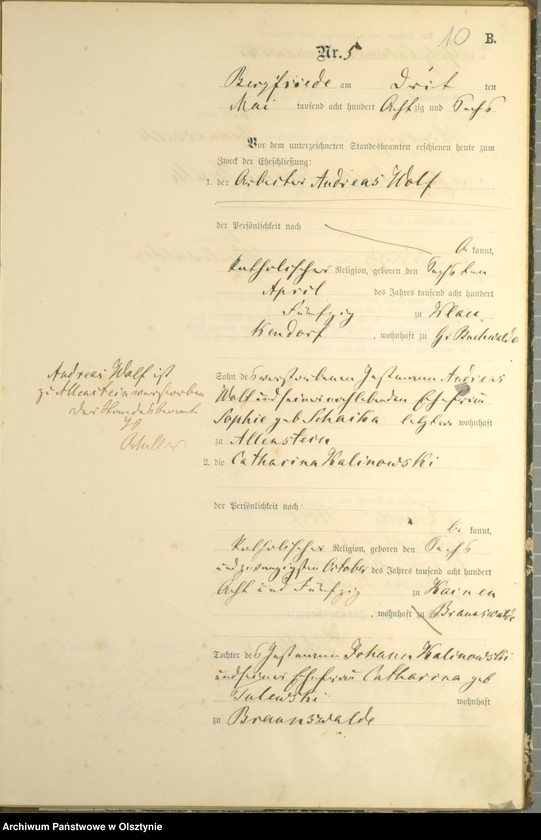 10 B.
Nr. 5
Bergfriede am Drit ten
Mai tausend acht hundert Achtzig und Sechs
Vor dem unterzeichneten Standesbeamten erschienen heute zum
Zweck der Eheschließung:
1. der Arbeiter Andreas Wolf
der Persönlichkeit nach
be kannt,
katholischer Religion, geboren den Sechsten
April des Jahres tausend acht hundert
Fünfzig zu Klau
kendorf, wohnhaft zu Gr Buchwalde
Andreas Wolf ist
zu Allenstein verstorben
Der Standesbeamte
Sohn des verstorbenen Instmann Andreas
Wolf und seiner nachlebenden Ehefrau
Sophie geb Schaika letztere wohnhaft
zu Allenstein
2. die Catharina Kalinowski
der Persönlichkeit nach
be kannt,
katholischer Religion, geboren den Sechs
undzwanzigsten October des Jahres tausend acht hundert
Acht und Fünfzig zu Kainen
, wohnhaft zu Braunswalde
Tochter des Instmann Johann Kalinowski
und seiner Ehefrau Catharina geb
wohnhaft
zu Braunswalde
Archiwum Państwowe w Olsztynie